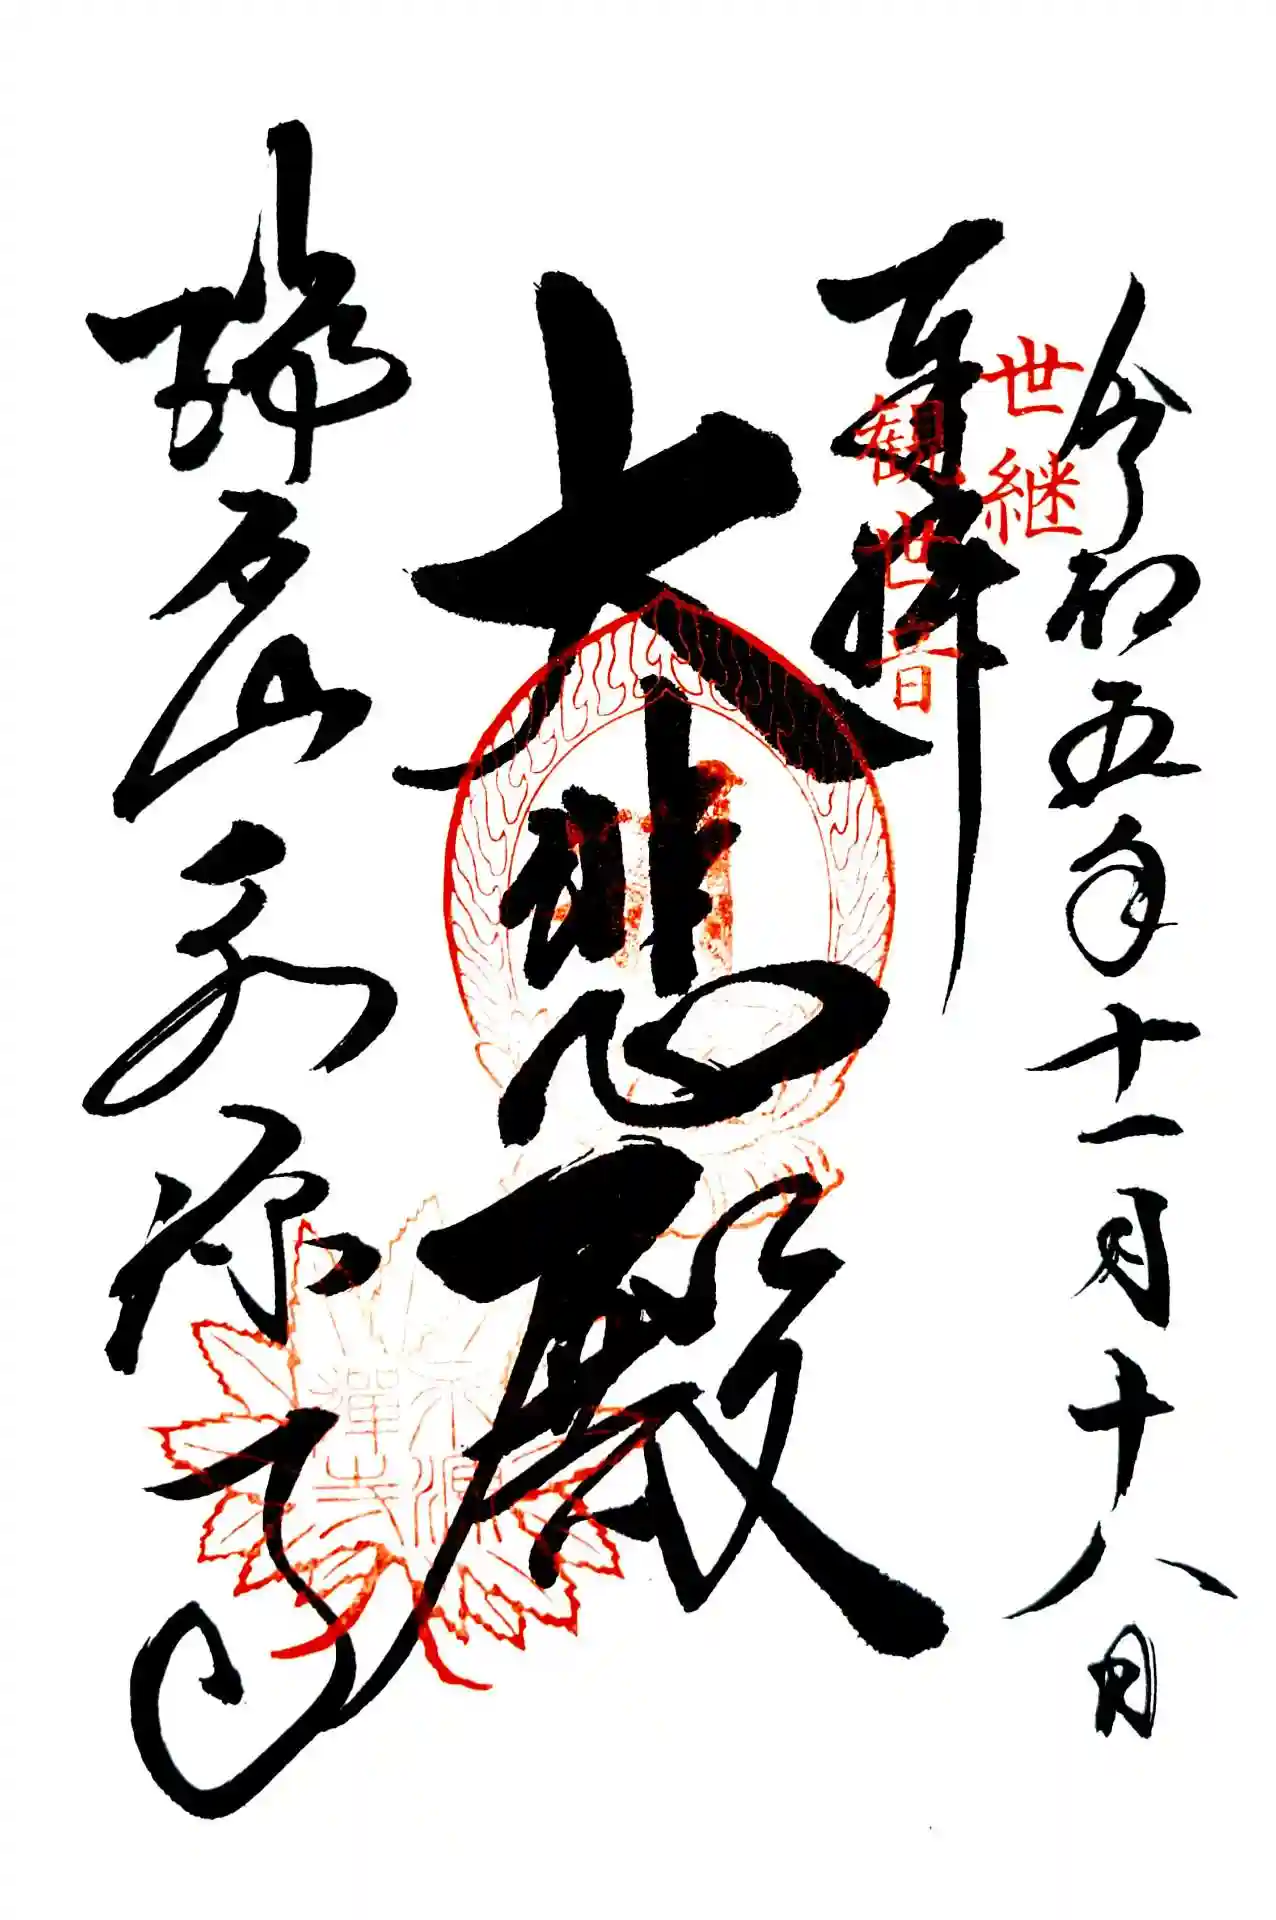 令和五年十一月十八日
世継
観世音
奉拝
大悲殿
瑞石山永源寺
永源
禅寺